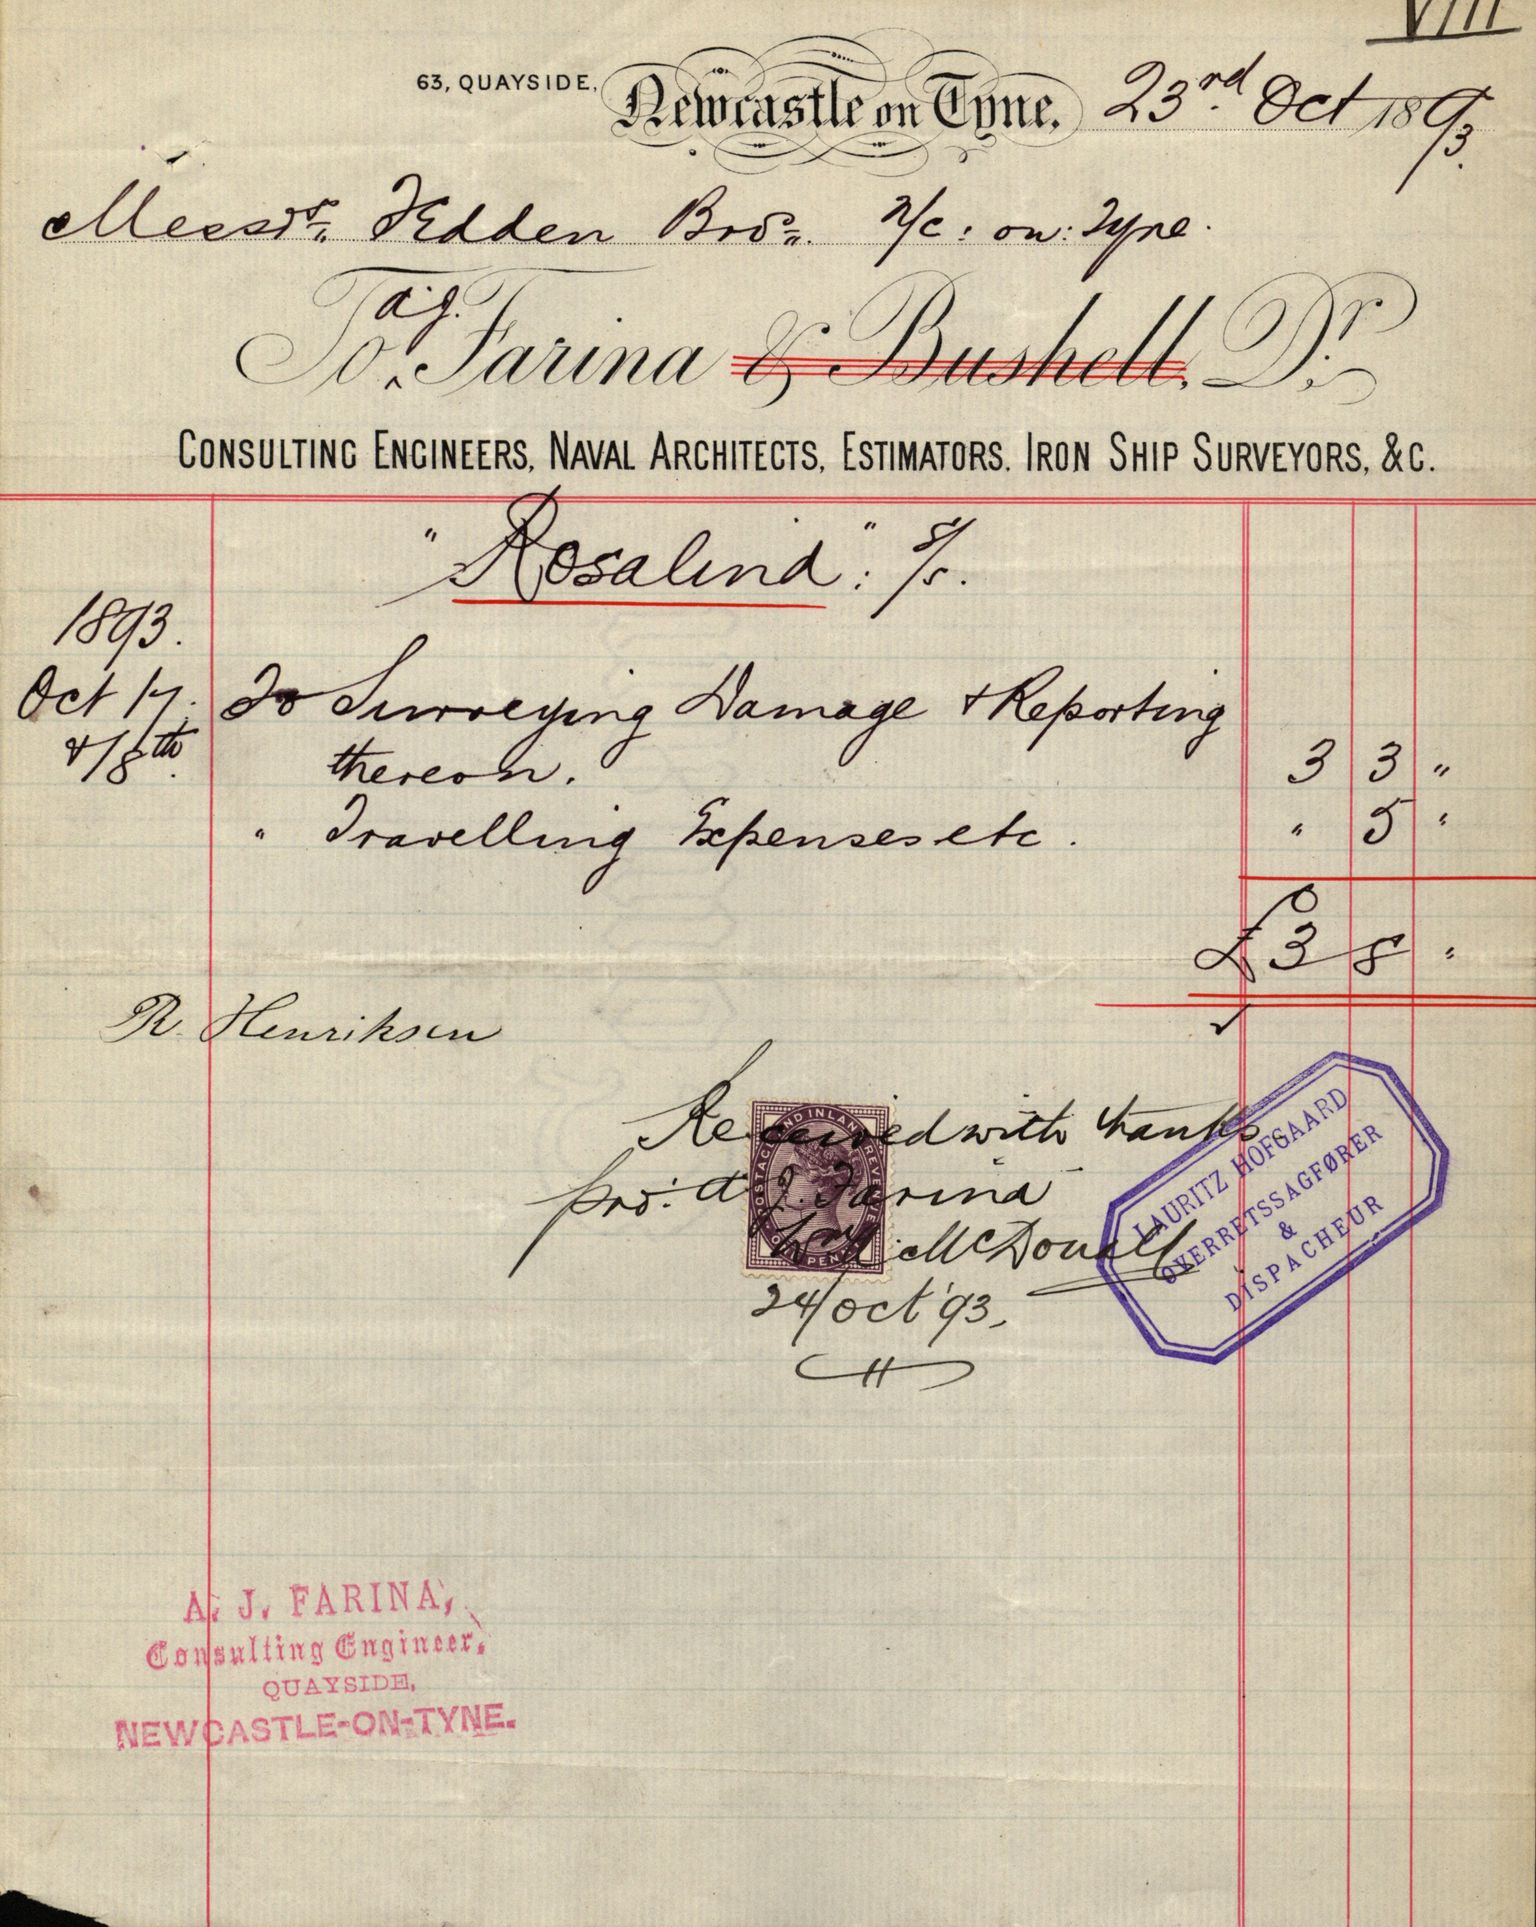 VIII
63, QUAYSIDE, Newcastle on Tyne. 23rd. Oct 1893.
Messrs. Fedden Bros. N/C: on: Tyne.
To A.J. Farina & Bushell, Dr.
CONSULTING ENGINEERS, NAVAL ARCHITECTS, ESTIMATORS. IRON SHIP SURVEYORS, &C.
"Rosalind": S/S.
1893.
Oct 17. To Surveying Damage & Reporting
& 18th. thereon. 3 3 "
" Travelling Expenses etc. " 5 "
£3 8 "
R. Henriksen
Received with thanks
pro: A J. Farina
Wm McDonall
24/Oct '93.
POSTAGE AND INLAND REVENUE
ONE PENNY
LAURITZ HOFGAARD
OVERRETSSAGFØRER
&
DISPACHEUR
A. J. FARINA,
Consulting Engineer,
QUAYSIDE,
NEWCASTLE-ON-TYNE.